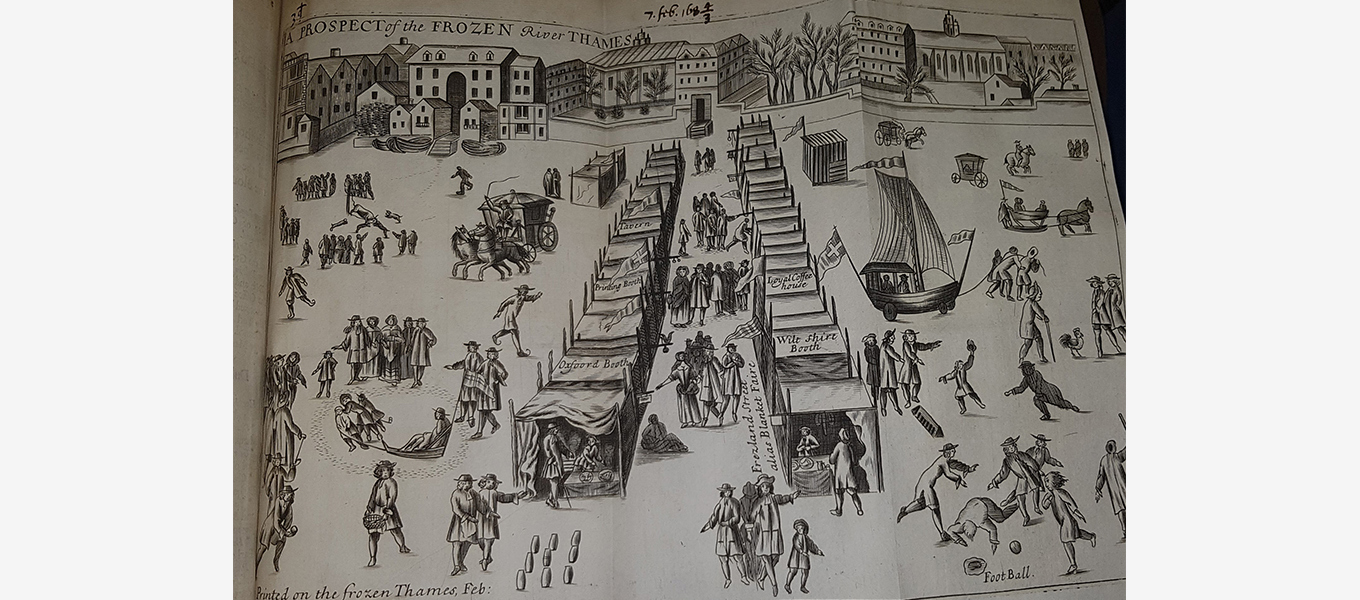 7. feb. 168 4/3
A PROSPECT of the FROZEN River THAMES
Tavern
Printing Booth
Loyal Coffee
house
Oxfoord Booth
Wilt shire
Booth
Frezland Street
alias Blanket Faire
Foot Ball.
Printed on the frozen Thames, Feb: